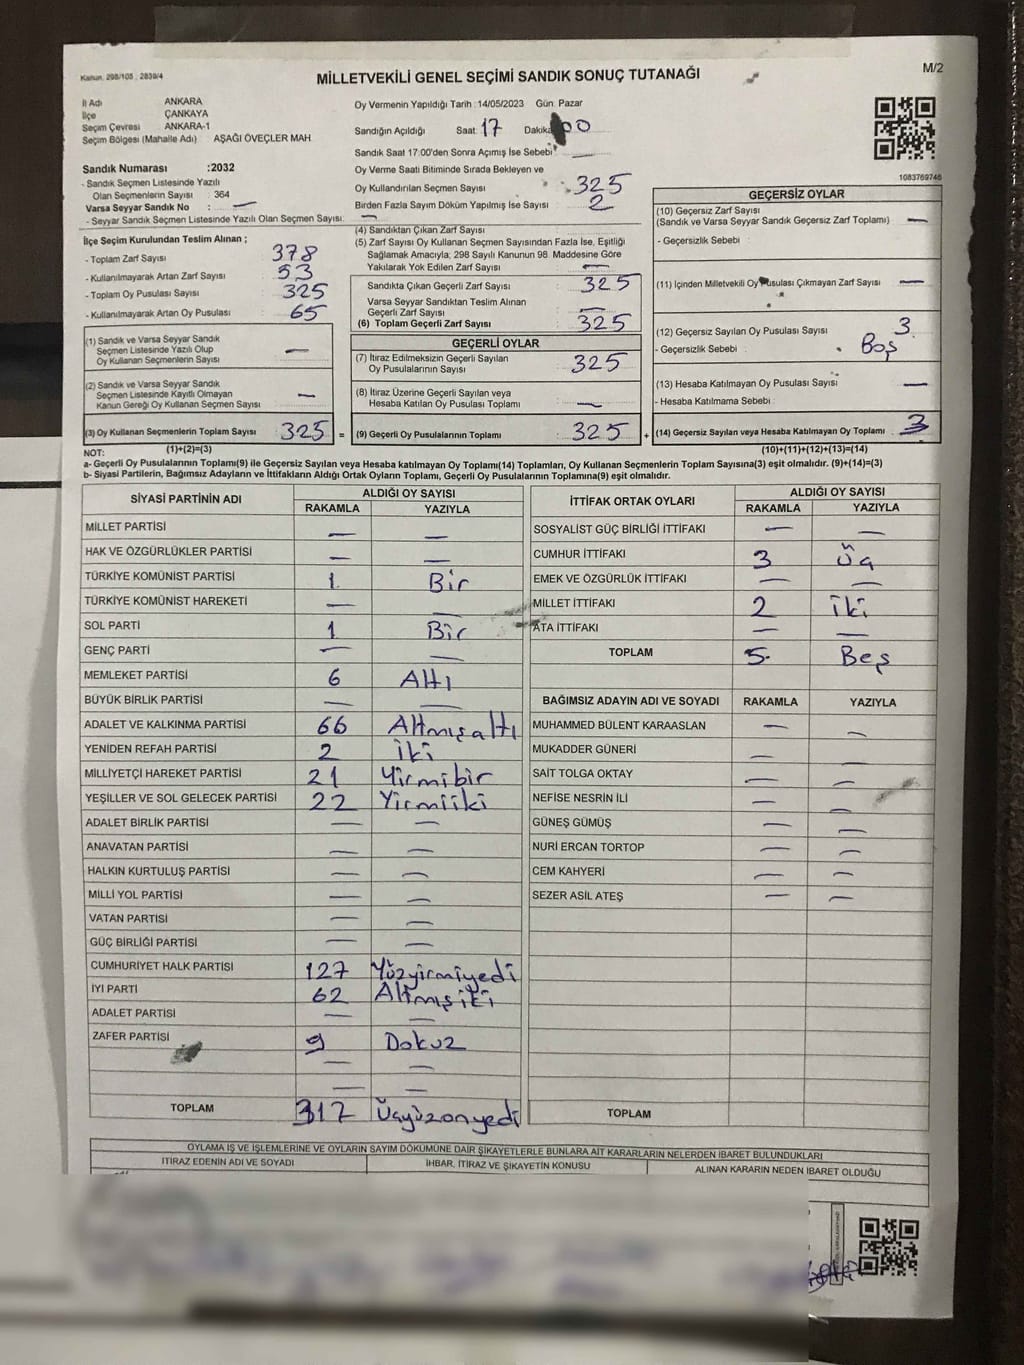 Kanun: 298/105 ; 2839/4
MİLLETVEKİLİ GENEL SEÇİMİ SANDIK SONUÇ TUTANAĞI
M/2
İl Adı ANKARA
İlçe ÇANKAYA
Seçim Çevresi ANKARA-1
Seçim Bölgesi (Mahalle Adı) AŞAĞI ÖVEÇLER MAH
Sandık Numarası :2032
- Sandık Seçmen Listesinde Yazılı
Olan Seçmenlerin Sayısı : 364
Varsa Seyyar Sandık No : —
- Seyyar Sandık Seçmen Listesinde Yazılı Olan Seçmen Sayısı: —
Oy Vermenin Yapıldığı Tarih :14/05/2023 Gün: Pazar
Sandığın Açıldığı Saat: 17 Dakika 00
Sandık Saat 17:00'den Sonra Açımış İse Sebebi: —
Oy Verme Saati Bitiminde Sırada Bekleyen ve
Oy Kullandırılan Seçmen Sayısı : 325
Birden Fazla Sayım Döküm Yapılmış İse Sayısı : 2
1083769746
İlçe Seçim Kurulundan Teslim Alınan ;
- Toplam Zarf Sayısı : 378
- Kullanılmayarak Artan Zarf Sayısı : 53
- Toplam Oy Pusulası Sayısı : 325
- Kullanılmayarak Artan Oy Pusulası : 65
(1) Sandık ve Varsa Seyyar Sandık
Seçmen Listesinde Yazılı Olup
Oy Kullanan Seçmenlerin Sayısı : —
(2) Sandık ve Varsa Seyyar Sandık
Seçmen Listesinde Kayıtlı Olmayan
Kanun Gereği Oy Kullanan Seçmen Sayısı : —
(3) Oy Kullanan Seçmenlerin Toplam Sayısı : 325 =
(4) Sandıktan Çıkan Zarf Sayısı
(5) Zarf Sayısı Oy Kullanan Seçmen Sayısından Fazla İse, Eşitliği
Sağlamak Amacıyla; 298 Sayılı Kanunun 98. Maddesine Göre
Yakılarak Yok Edilen Zarf Sayısı : —
Sandıkta Çıkan Geçerli Zarf Sayısı : 325
Varsa Seyyar Sandıktan Teslim Alınan
Geçerli Zarf Sayısı : —
(6) Toplam Geçerli Zarf Sayısı : 325
GEÇERLİ OYLAR
(7) İtiraz Edilmeksizin Geçerli Sayılan
Oy Pusulalarının Sayısı : 325
(8) İtiraz Üzerine Geçerli Sayılan veya
Hesaba Katılan Oy Pusulası Toplamı : —
(9) Geçerli Oy Pusulalarının Toplamı : 325 +
GEÇERSİZ OYLAR
(10) Geçersiz Zarf Sayısı
(Sandık ve Varsa Seyyar Sandık Geçersiz Zarf Toplamı) : —
- Geçersizlik Sebebi :
(11) İçinden Milletvekili Oy Pusulası Çıkmayan Zarf Sayısı : —
(12) Geçersiz Sayılan Oy Pusulası Sayısı : 3
- Geçersizlik Sebebi : Boş
(13) Hesaba Katılmayan Oy Pusulası Sayısı : —
- Hesaba Katılmama Sebebi :
(14) Geçersiz Sayılan veya Hesaba Katılmayan Oy Pusulası Toplamı : 3
NOT: (1)+(2)=(3) (10)+(11)+(12)+(13)=(14)
a- Geçerli Oy Pusulalarının Toplamı(9) ile Geçersiz Sayılan veya Hesaba katılmayan Oy Toplamı(14) Toplamları, Oy Kullanan Seçmenlerin Toplam Sayısına(3) eşit olmalıdır. (9)+(14)=(3)
b- Siyasi Partilerin, Bağımsız Adayların ve İttifakların Aldığı Ortak Oyların Toplamı, Geçerli Oy Pusulalarının Toplamına(9) eşit olmalıdır.
SİYASİ PARTİNİN ADI ALDIĞI OY SAYISI
RAKAMLA YAZIYLA
MİLLET PARTİSİ — —
HAK VE ÖZGÜRLÜKLER PARTİSİ — —
TÜRKİYE KOMÜNİST PARTİSİ 1 Bir
TÜRKİYE KOMÜNİST HAREKETİ — —
SOL PARTİ 1 Bir
GENÇ PARTİ — —
MEMLEKET PARTİSİ 6 Altı
BÜYÜK BİRLİK PARTİSİ — —
ADALET VE KALKINMA PARTİSİ 66 Altmışaltı
YENİDEN REFAH PARTİSİ 2 İki
MİLLİYETÇİ HAREKET PARTİSİ 21 Yirmibir
YEŞİLLER VE SOL GELECEK PARTİSİ 22 Yirmiiki
ADALET BİRLİK PARTİSİ — —
ANAVATAN PARTİSİ — —
HALKIN KURTULUŞ PARTİSİ — —
MİLLİ YOL PARTİSİ — —
VATAN PARTİSİ — —
GÜÇ BİRLİĞİ PARTİSİ — —
CUMHURİYET HALK PARTİSİ 127 Yüzyirmiyedi
İYİ PARTİ 62 Altmışiki
ADALET PARTİSİ — —
ZAFER PARTİSİ 9 Dokuz
— —
— —
TOPLAM 317 Üçyüzonyedi
İTTİFAK ORTAK OYLARI ALDIĞI OY SAYISI
RAKAMLA YAZIYLA
SOSYALİST GÜÇ BİRLİĞİ İTTİFAKI — —
CUMHUR İTTİFAKI 3 Üç
EMEK VE ÖZGÜRLÜK İTTİFAKI — —
MİLLET İTTİFAKI 2 İki
ATA İTTİFAKI — —
TOPLAM 5 Beş
BAĞIMSIZ ADAYIN ADI VE SOYADI RAKAMLA YAZIYLA
MUHAMMED BÜLENT KARAASLAN — —
MUKADDER GÜNERİ — —
SAİT TOLGA OKTAY — —
NEFİSE NESRİN İLİ — —
GÜNEŞ GÜMÜŞ — —
NURİ ERCAN TORTOP — —
CEM KAHYERİ — —
SEZER ASİL ATEŞ — —
TOPLAM
OYLAMA İŞ VE İŞLEMLERİNE VE OYLARIN SAYIM DÖKÜMÜNE DAİR ŞİKAYETLERLE BUNLARA AİT KARARLARIN NELERDEN İBARET BULUNDUKLARI
İTİRAZ EDENİN ADI VE SOYADI İHBAR, İTİRAZ VE ŞİKAYETİN KONUSU ALINAN KARARIN NEDEN İBARET OLDUĞU